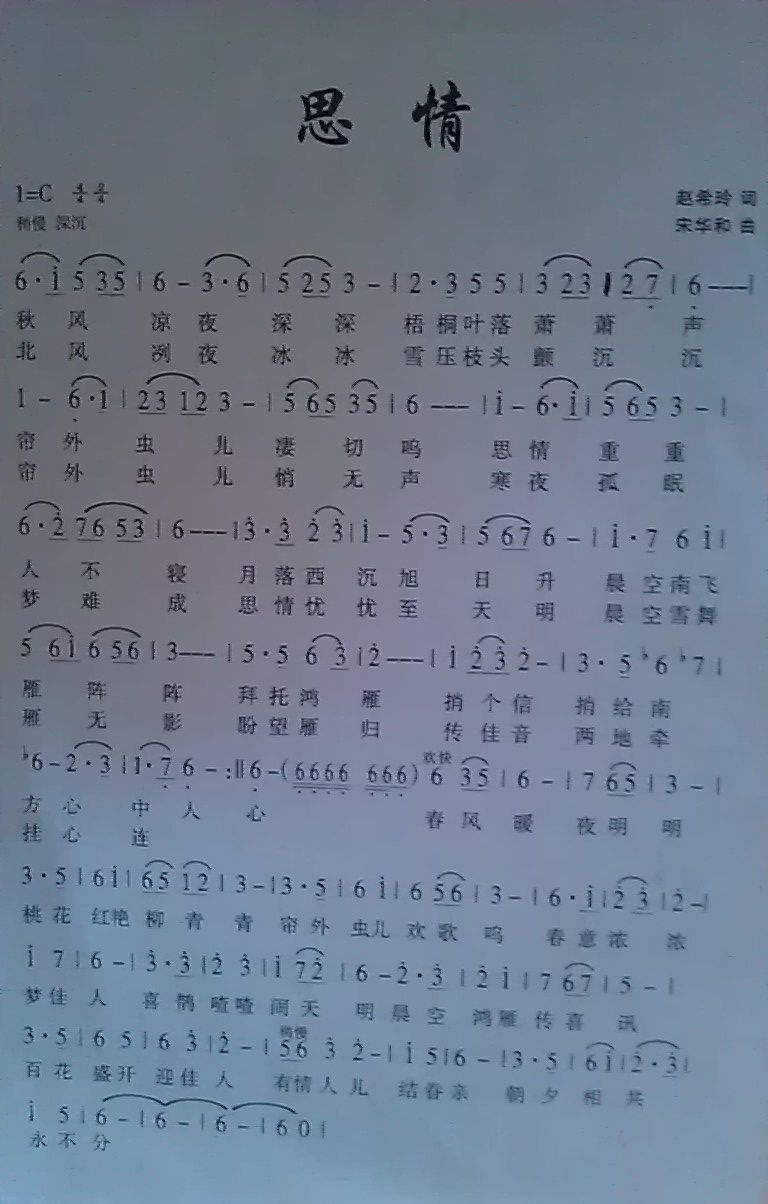 思情
1=C 4/4
赵希玲 词
稍慢 深沉
宋华和 曲
6·i 5 35 | 6 – 3·6 | 5 25 3 – | 2·3 5 5 | 3 23 | 2 7 | 6 ––– |
秋 风 凉 夜 深 深 梧 桐 叶 落 萧 萧 声
北 风 冽 夜 冰 冰 雪 压 枝 头 颤 沉 沉
1 – 6·1 | 23 12 3 – | 5 65 35 | 6 ––– | i – 6·i | 5 65 3 – |
帘 外 虫 儿 凄 切 鸣 思 情 重 重
帘 外 虫 儿 悄 无 声 寒 夜 孤 眠
6·2 76 53 | 6 ––– | 3·3 2 3 | i – 5·3 | 5 67 6 – | i·7 6 i |
人 不 寝 月 落 西 沉 旭 日 升 晨 空 南 飞
梦 难 成 思 情 忧 忧 至 天 明 晨 空 雪 舞
5 6i 6 56 | 3 ––– | 5·5 6 3 | 2 ––– | i 2 3 2 – | 3·5 ♭6 ♭7 |
雁 阵 阵 拜 托 鸿 雁 捎 个 信 捎 给 南
雁 无 影 盼 望 雁 归 传 佳 音 两 地 牵
♭6 – 2·3 | 1·7 6 – :‖ 6 – (6666 666) 欢快 6 35 | 6 – | 7 65 | 3 – |
方 心 中 人 心 春 风 暖 夜 明 明
挂 心 连
3·5 | 6 i | 65 12 | 3 – | 3·5 | 6 i | 6 56 | 3 – | 6·i | 2 3 | 2 – |
桃 花 红艳 柳 青 青 帘 外 虫儿 欢 歌 鸣 春 意 浓 浓
i 7 | 6 – | 3·3 | 2 3 | i 72 | 6 – 2·3 | 2 i | 7 67 | 5 – |
梦 佳 人 喜 鹊 喳喳 闹 天 明 晨 空 鸿雁 传 喜 讯
3·5 | 6 5 | 6 3 | 2 – | 稍慢 56 3 2 – | i 5 | 6 – | 3·5 | 6 i | 2·3 |
百 花 盛 开 迎 佳 人 有情 人 儿 结 春 亲 朝 夕 相 共
i 5 | 6 – | 6 – | 6 – | 6 0 |
永 不 分